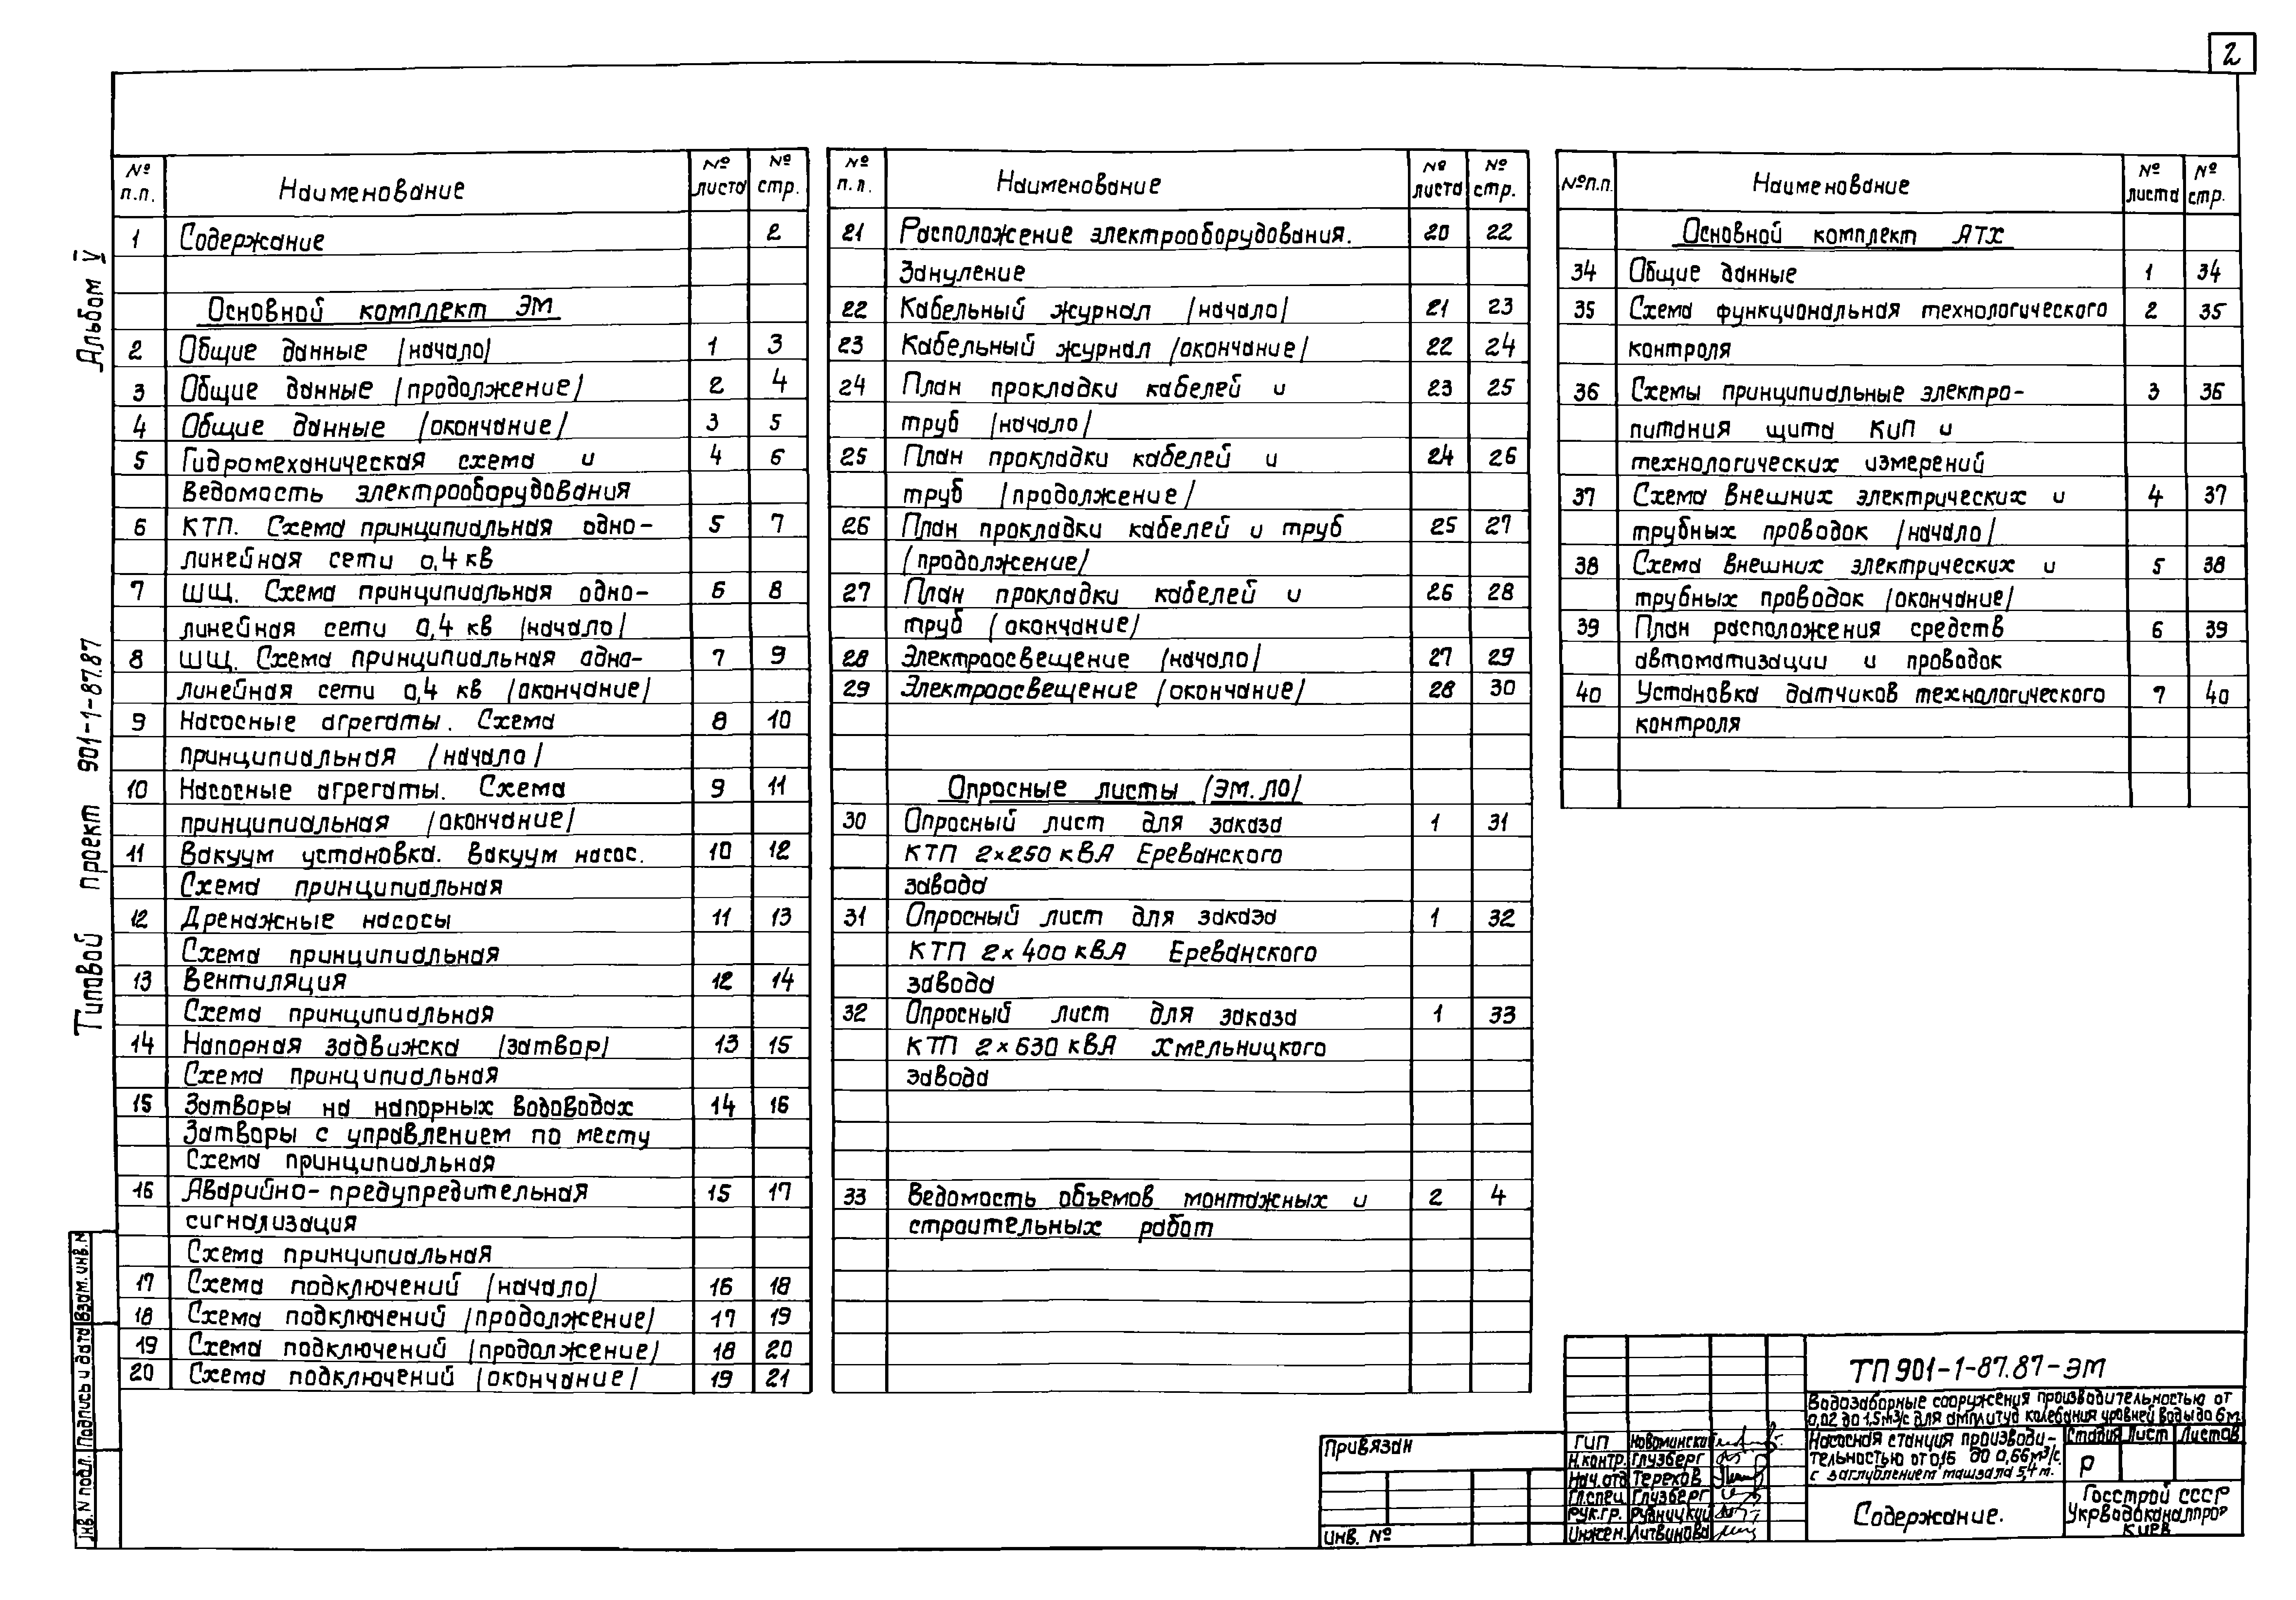 2
Альбом V
Типовой проект 901-1-87.87
№ п.п. Наименование № листа № стр.
1 Содержание 2
Основной комплект ЭМ
2 Общие данные /начало/ 1 3
3 Общие данные /продолжение/ 2 4
4 Общие данные /окончание/ 3 5
5 Гидромеханическая схема и 4 6
ведомость электрооборудования
6 КТП. Схема принципиальная одно- 5 7
линейная сети 0,4 кв
7 ШЩ. Схема принципиальная одно- 6 8
линейная сети 0,4 кв /начало/
8 ШЩ. Схема принципиальная одно- 7 9
линейная сети 0,4 кв /окончание/
9 Насосные агрегаты. Схема 8 10
принципиальная /начало/
10 Насосные агрегаты. Схема 9 11
принципиальная /окончание/
11 Вакуум установка. Вакуум насос. 10 12
Схема принципиальная
12 Дренажные насосы 11 13
Схема принципиальная
13 Вентиляция 12 14
Схема принципиальная
14 Напорная задвижка /затвор/ 13 15
Схема принципиальная
15 Затворы на напорных водоводах 14 16
Затворы с управлением по месту
Схема принципиальная
16 Аварийно-предупредительная 15 17
сигнализация
Схема принципиальная
17 Схема подключений /начало/ 16 18
18 Схема подключений /продолжение/ 17 19
19 Схема подключений /продолжение/ 18 20
20 Схема подключений /окончание/ 19 21
№ п.п. Наименование № листа № стр.
21 Расположение электрооборудования. 20 22
Зануление
22 Кабельный журнал /начало/ 21 23
23 Кабельный журнал /окончание/ 22 24
24 План прокладки кабелей и 23 25
труб /начало/
25 План прокладки кабелей и 24 26
труб /продолжение/
26 План прокладки кабелей и труб 25 27
/продолжение/
27 План прокладки кабелей и 26 28
труб /окончание/
28 Электроосвещение /начало/ 27 29
29 Электроосвещение /окончание/ 28 30
Опросные листы /ЭМ.ЛО/
30 Опросный лист для заказа 1 31
КТП 2×250 кВА Ереванского
завода
31 Опросный лист для заказа 1 32
КТП 2×400 кВА Ереванского
завода
32 Опросный лист для заказа 1 33
КТП 2×630 кВА Хмельницкого
завода
33 Ведомость объемов монтажных и 2 4
строительных работ
№п.п. Наименование № листа № стр.
Основной комплект АТХ
34 Общие данные 1 34
35 Схема функциональная технологического 2 35
контроля
36 Схемы принципиальные электро- 3 36
питания щита КиП и
технологических измерений
37 Схема внешних электрических и 4 37
трубных проводок /начало/
38 Схема внешних электрических и 5 38
трубных проводок /окончание/
39 План расположения средств 6 39
автоматизации и проводок
40 Установка датчиков технологического 7 40
контроля
Взам. инв. №
Подпись и дата
Инв. N подл.
Привязан
Инв. №
ГИП Новоминский
Н.контр. Глузберг
Нач.отд Терехов
Гл.спец Глузберг
Рук.гр. Рудницкий
Инжен. Литвинова
ТП 901-1-87.87-ЭМ
Водозаборные сооружения производительностью от
0,02 до 1,5 м³/с для амплитуд колебания уровней воды до 6 м
Насосная станция производи-
тельностью от 0,16 до 0,66 м³/с
с заглублением машзала 5,4 м.
Стадия Лист Листов
Р
Содержание.
Госстрой СССР
Укрводоканалпроr
Киев